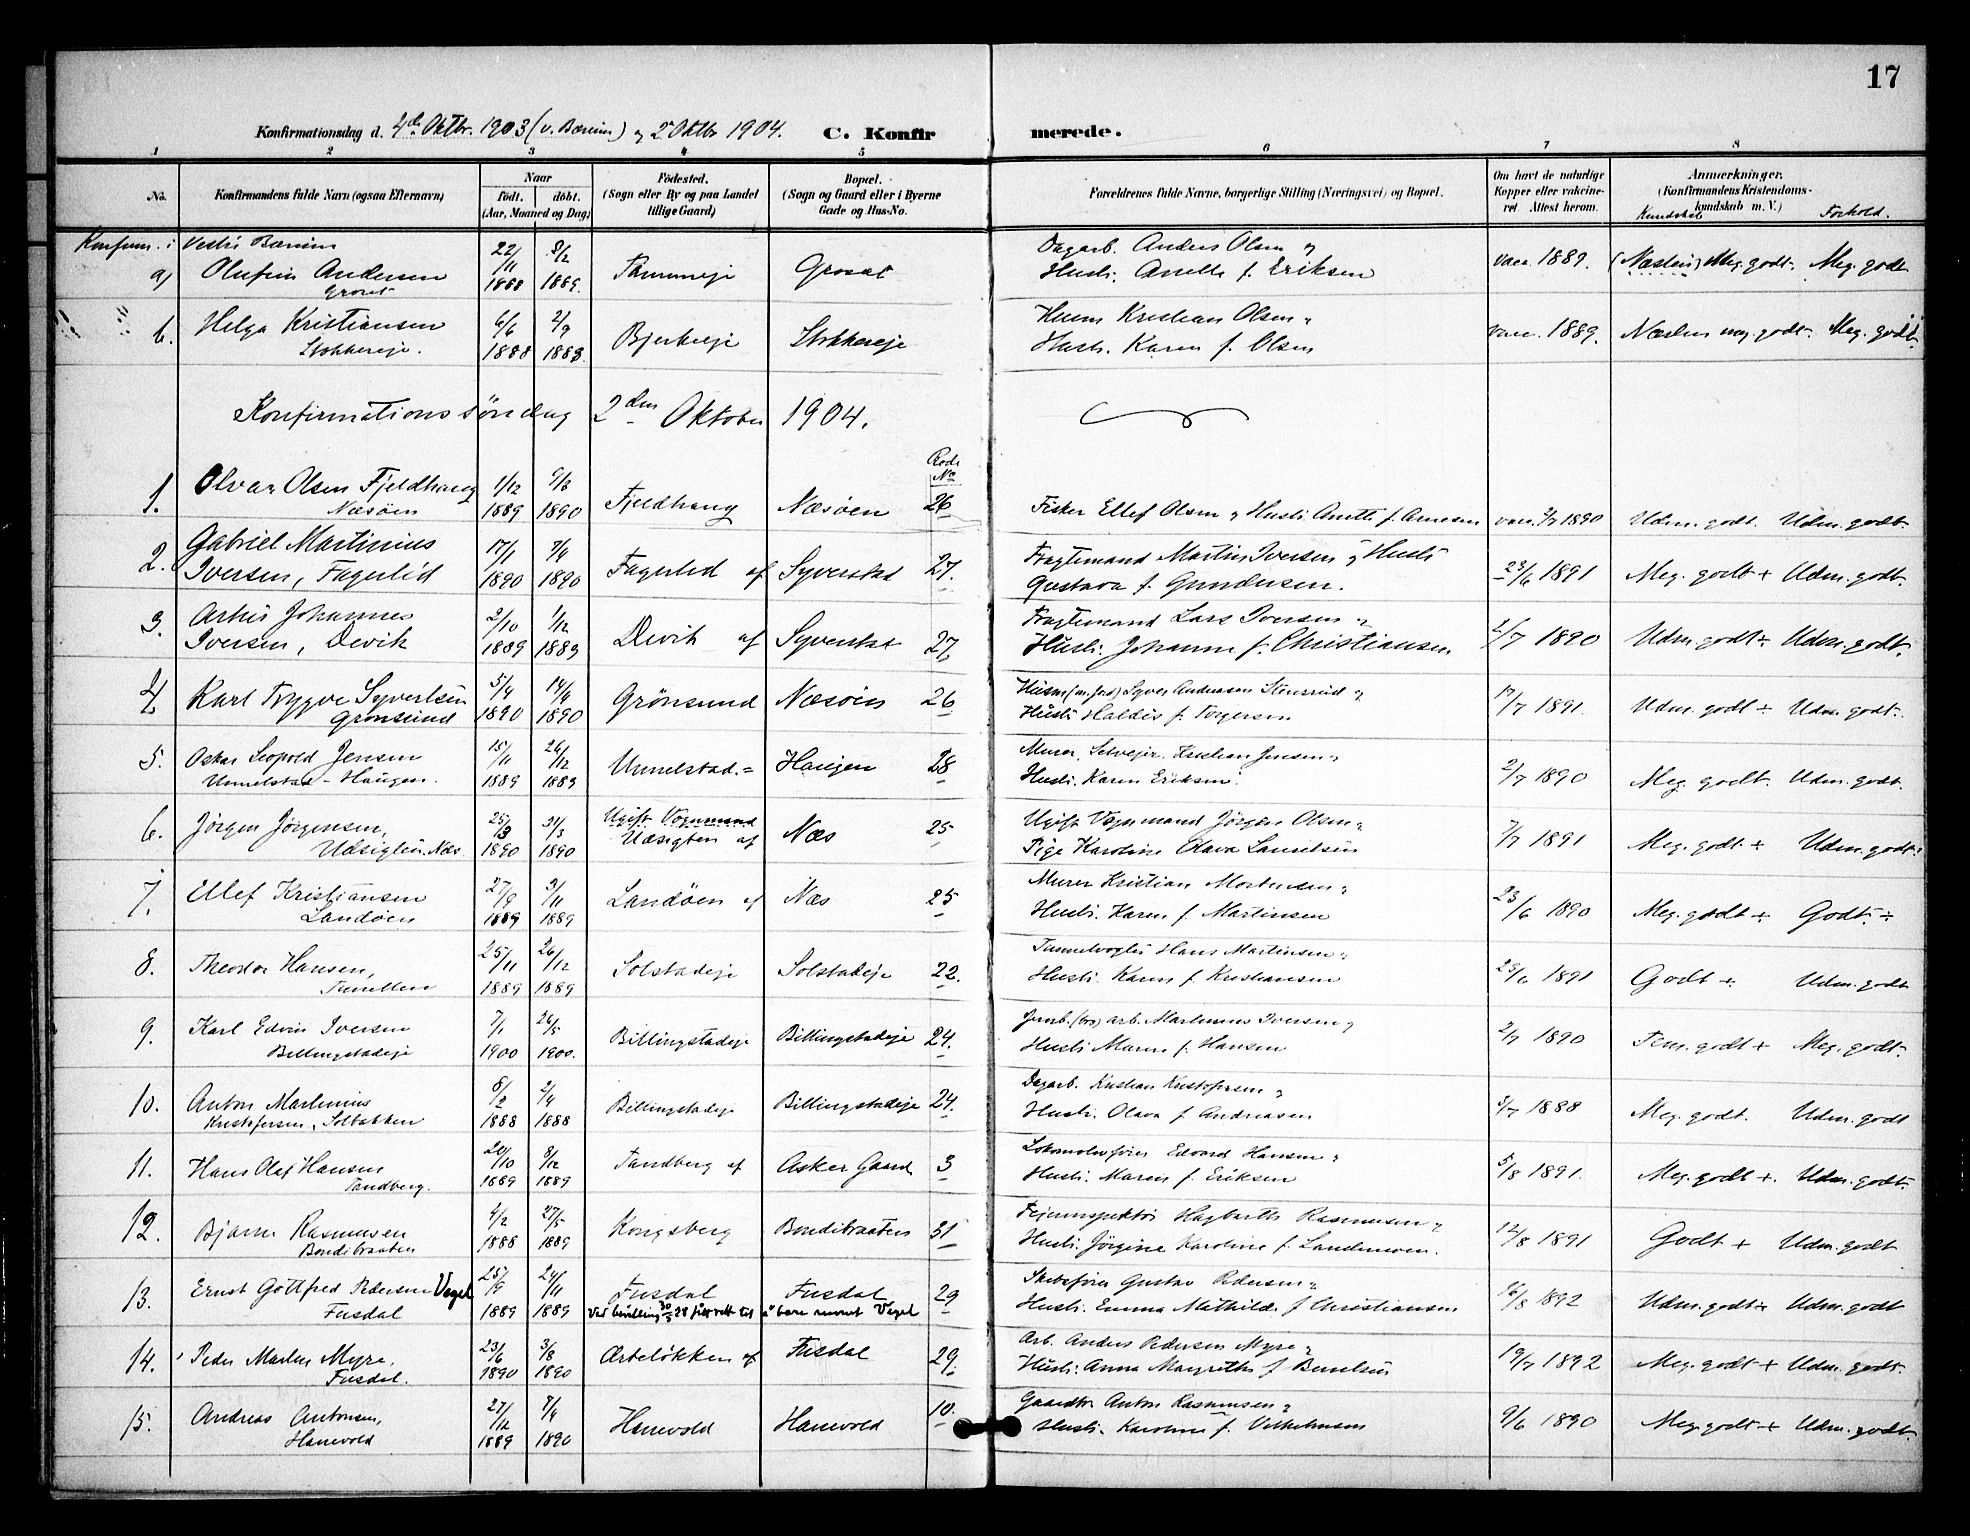 17
Konfirmationsdag d. 4de Oktbr. 1903 (v. Bærum) og 2 Oktbr 1904. C. Konfirmerede.
1 2 3 4 5 6 7 8
No. Konfirmandens fulde Navn (ogsaa Efternavn) Naar født. døbt. (Aar, Maaned og Dag) Fødested. (Sogn eller By og paa Landet tillige Gaard) Bopæl. (Sogn og Gaard eller i Byerne Gade og Hus-No. Forældrenes fulde Navne, borgerlige Stilling (Næringsvei) og Bopæl. Om havt de naturlige Kopper eller vakcineret Attest herom. Anmærkninger. (Konfirmandens Kristendomskundskab m. V.) Kundskab Forhold.
Konfirm. i Vestre Bærum
a) Olufine Andersen 22/11 1888 8/12 1889. Tanumeje Groset Dagarb. Anders Olsen og
Groset Hustr. Anette f. Eriksen vacc. 1889. (Næsten) Meg. godt. Meg. godt
b. Helga Kristiansen 6/6 1888 2/9 1888. Bjerkeeje Stokkereje Husm Kristian Olsen og
Stokkereje. Hustr. Karen f. Olsen vacc. 1889. Næsten meg godt. Meg. godt.
Konfirmationssøndag 2den Oktober 1904.
Rode No
1. Olvar Olsen Fjeldhaug 1/12 1889 1890 Fjeldhaug Næsøen 26
Næsøen Fisker Ellef Olsen og Hustr. Anette f. Arnesen vacc. 2/7 1890 Udm. godt. Udm. godt.
2. Gabriel Martinius 17/1 1890 7/4 1890 Fagerlid af Syverstad 27. Fragtemand Martin Iversen og Hustr
Iversen, Fagerlid Gustava f. Gundersen. 23/6 1891 Meg. godt + Udm. godt.
3. Johannes 2/10 1889 1/12 1889 Devik af Syverstad 27. Fragtemand Lars Iversen og
Iversen, Devik Hustr. Johanne f. Christiansen 2/7 1890 Udm. godt ÷ Udm. godt.
4. Karl Trygve Syvertsen 5/4 1890 14/4 1890 Grönsund Næsöen 26 Husm (m. jord) Syver Andreasen Stensrud og
Grönsund Hustr Haldis f. Torgersen 17/7 1891. Udm. godt ÷ Udm. godt.
5. Oskar Leopold Jensen 15/11 1889 26/12 1889 Unnelstad = Haugen 28 Murer, Selvejer, Kristian Jensen og
Unnelstad - Haugen. Hustr. Karen Eriksen 2/7 1890 Meg. godt. Udm. godt.
6. Jörgen Jörgensen, 25/3 1890 31/3 1890 Udsigten af Næs 25 Ugift Vognmand Jörgen Olsen og
Udsigten. Næs Ugift Vognmand Pige Karoline Olava Lauritsen 7/7 1891 Meg. godt + Udm. godt.
7. Ellef Kristiansen 27/9 1889 3/11 1889 Landöen af Næs 25 Murer Kristian Mortensen og
Landöen Hustr. Karen f. Martinsen 23/6 1890 Meg. godt + Godt ÷
8. Theodor Hansen, 25/11 1889 26/12 1889 Solstadeje Solstadeje 22. Tunnelvogter Hans Martinsen og
Tunellen Hustr. Karen f. Kristiansen 23/6 1891 Godt +. Udm. godt
9. Karl Edvin Iversen 7/1 1900 26/5 1900. Billingstadeje Billingstadeje 24. Jernb. (bro) arb. Martinius Iversen og
Billingstadeje Hustr Maren f. Hansen 2/7 1890 Tem. godt + Meg. godt.
10. Anton Martinius 8/2 1888 2/4 1888 Billingstadeje Billingstadeje 24. Dagarb. Kristian Kristofersen og
Kristofersen, Solbakken Hustr. Olava f. Andreasen 3/7 1888 Meg. godt. Udm. godt
11. Hans Olaf Hansen 20/10 1889 8/12 1889 Tandberg af Asker Gaard 3 Lokomotivförer Edvard Hansen og
Tandberg. Hustr. Maren f. Eriksen 5/8 1891. Meg. godt +. Udm. godt.
12. Bjarne Rasmussen 4/2 1888 27/5 1889 Kongsberg Bondibraaten 31 Fejerinspektör Hagbarth Rasmussen og
Bondibraaten Hustr. Jörgine Karoline f. Landmoen. 12/8 1891 Godt + Udm. godt
13. Ernst Gottfred Pedersen Vagel 25/9 1889 24/11 1889 Fusdal Fusdal 29 Skibsförer Gustav Pedersen og
Fusdal Ved bevilling 30/5 28 fått rett til å bære navnet Vagel Hustr. Emma Mathilde f. Christiansen 16/8 1892 Udm. godt + Udm. godt
14. Peder Martin Myre, 23/6 1890 3/8 1890 Ærteløkken af Fusdal 29. Arb. Anders Pedersen Myre og
Fusdal. Hustr. Anna Margrethe f Bentsen 19/7 1892 Meg. godt + Udm. godt.
15. Andreas Antonsen, 27/12 1889 7/4 1890 Hanevold Hanevold 10. Gaardbr Anton Rasmussen og
Hanevold Hustr. Karoline f. Vilhelmsen 9/6 1890 Meg. godt + Udm. godt.